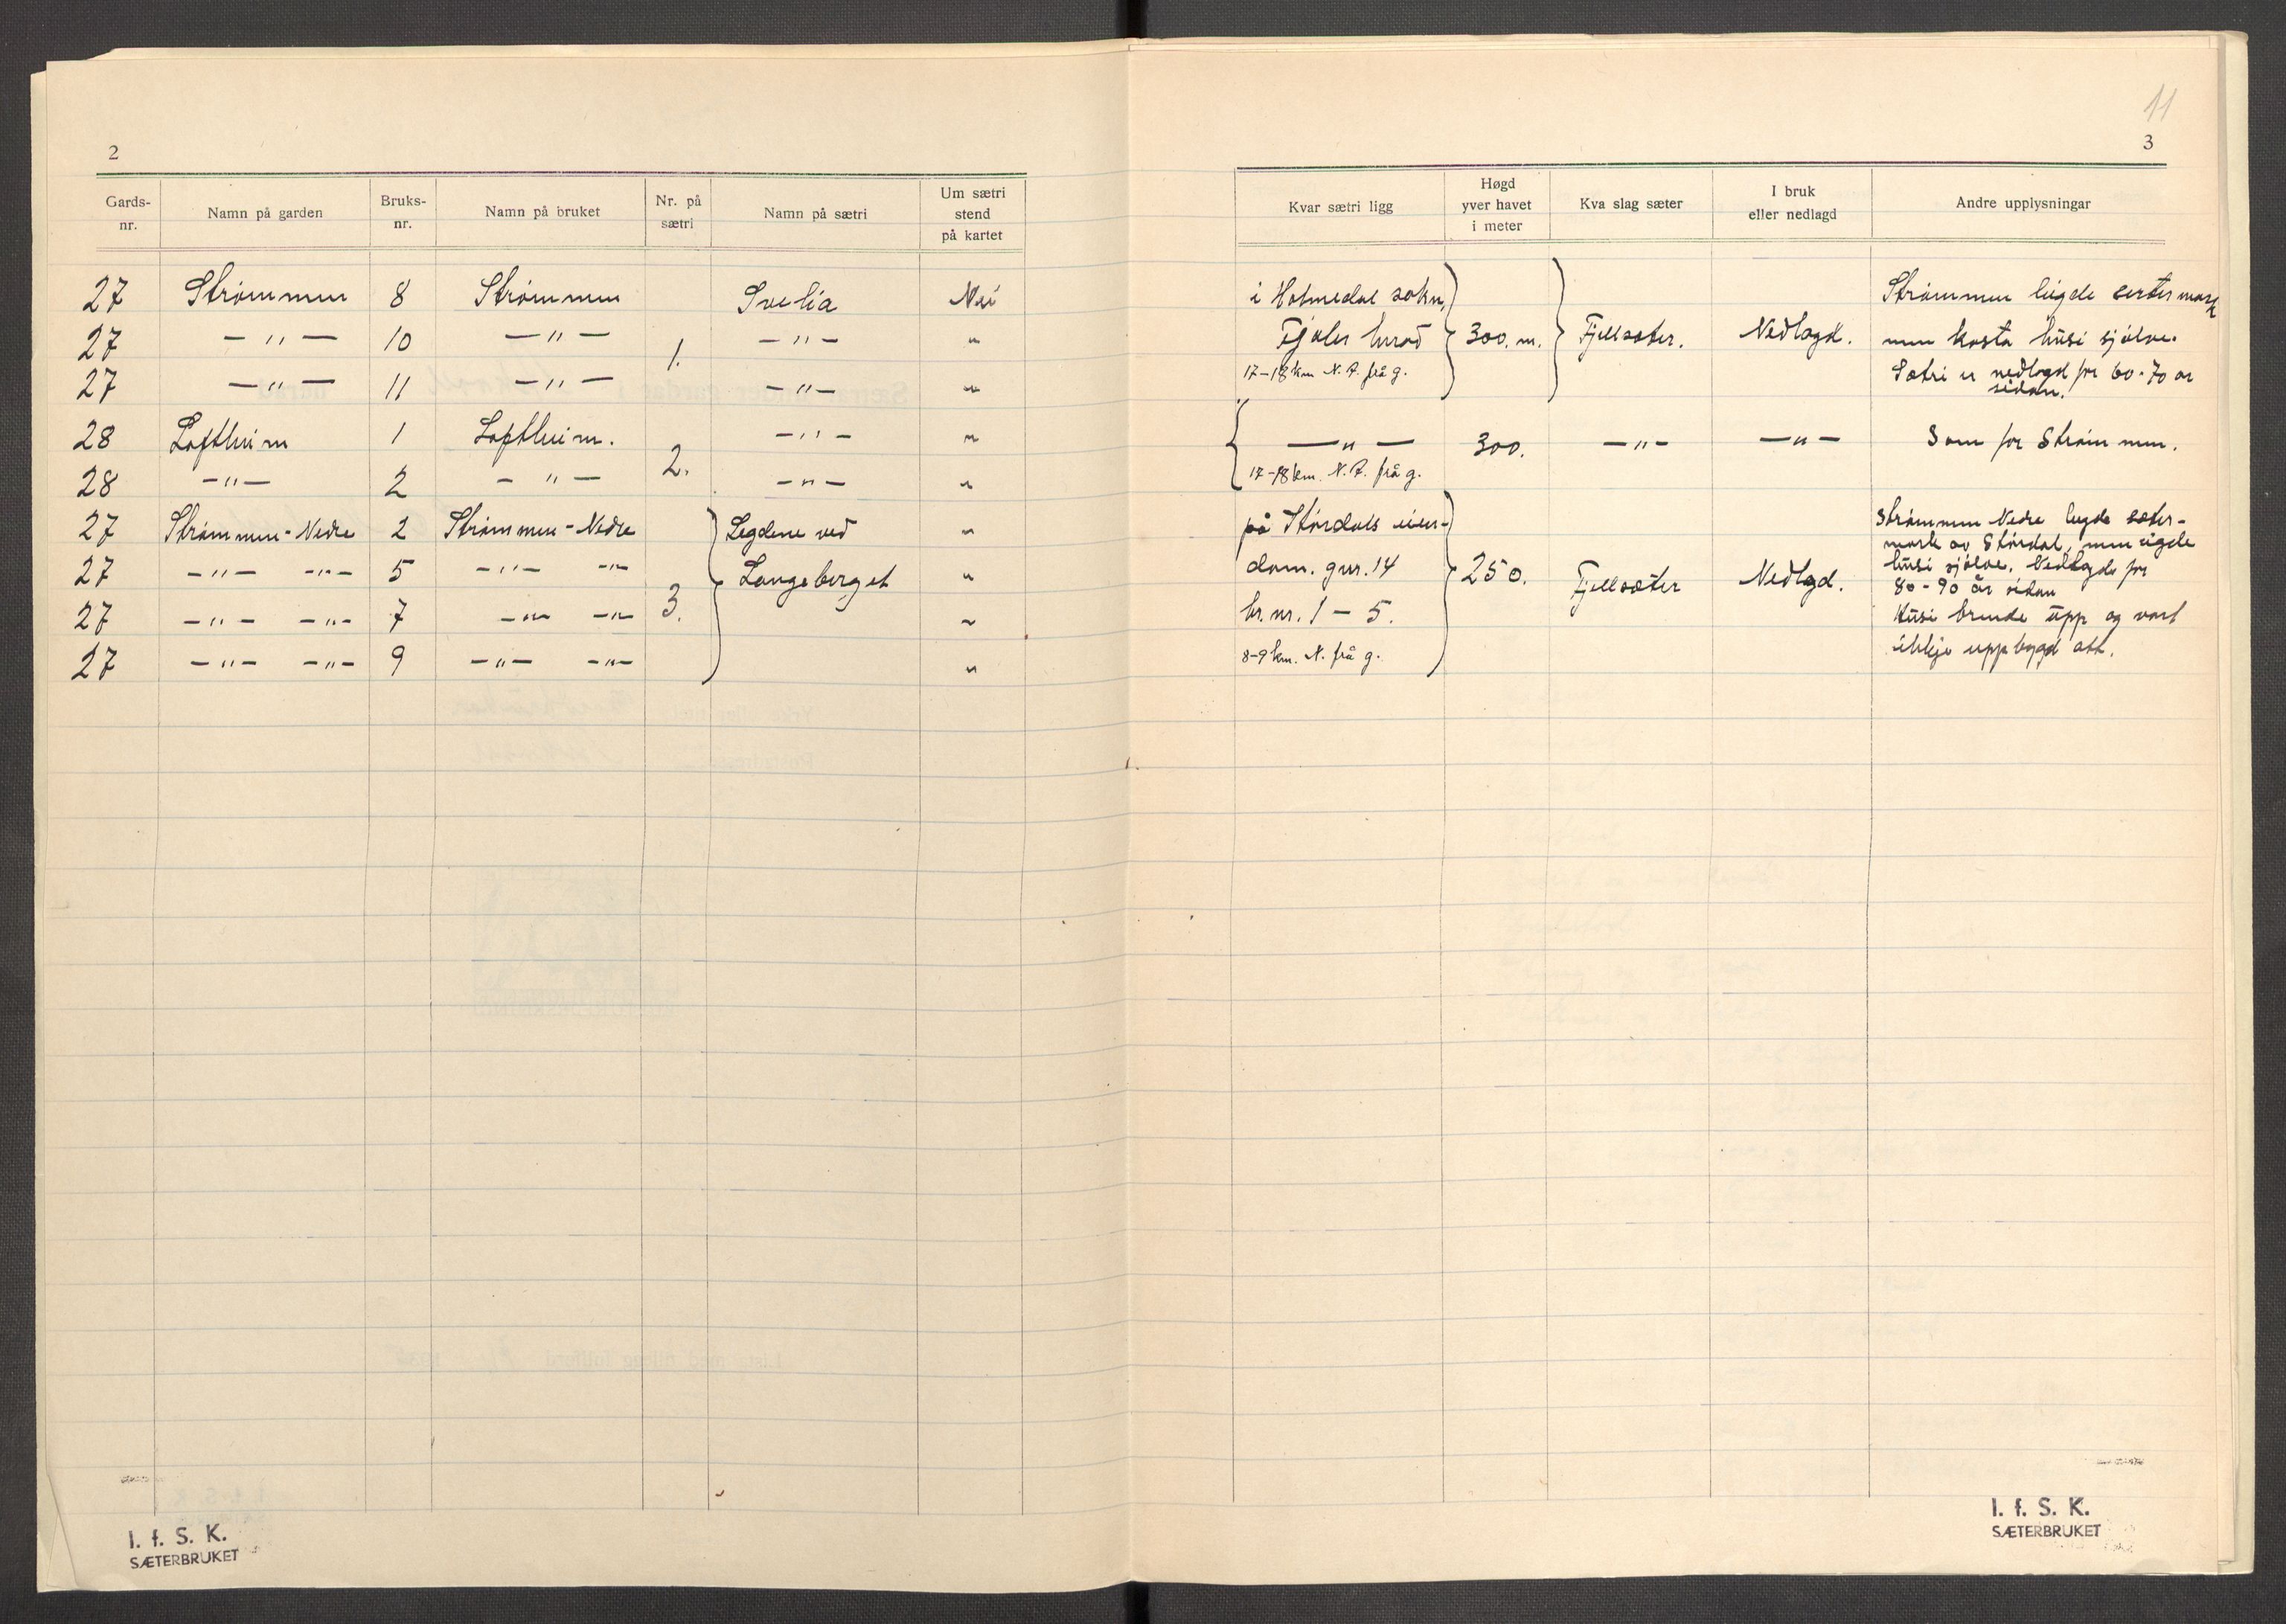 2
Gards-nr. Namn på garden Bruks-nr. Namn på bruket Nr. på sætri Namn på sætri Um sætri stend på kartet
27 Strømmen 8 Strømmen Svelia Nei
27 — " — 10 — " — 1. — " — "
27 — " — 11 — " — — " — "
28 Loftheim 1 Loftheim. — " — "
28 — " — 2 — " — 2. — " — "
27 Strømmen - Nedre 2 Strømmen - Nedre Legdene ved "
27 — " — — " — 5 — " — — " — Langeberget "
27 — " — — " — 7 — " — — " — 3. "
27 — " — — " — 9 — " — — " — "
I. f. S. K.
SÆTERBRUKET
11
3
Kvar sætri ligg Høgd yver havet i meter Kva slag sæter I bruk eller nedlagd Andre upplysningar
i Holmedal sokn, Strømmen leigde sætermark
Fjaler herad 300. m. Fjellsæter. Nedlagd. men kosta husi sjølve.
17-18 km N. A. frå g. Sætri er nedlagd for 60-70 år
sidan.
— " — 300. — " — — " — Som for Strømmen.
17-18 km. N. A. frå g.
på Størdals eien- Strømmen Nedre leigde sæter-
mark av Størdal, men eigde
dom. gnr. 14 husi sjølve. Nedlagde for
250. Fjellsæter Nedlagd. 80-90 år sidan
br. nr. 1 - 5. Husi brende upp og vart
8-9 km. N. frå g. ikkje uppbygd att.
I. f. S. K.
SÆTERBRUKET